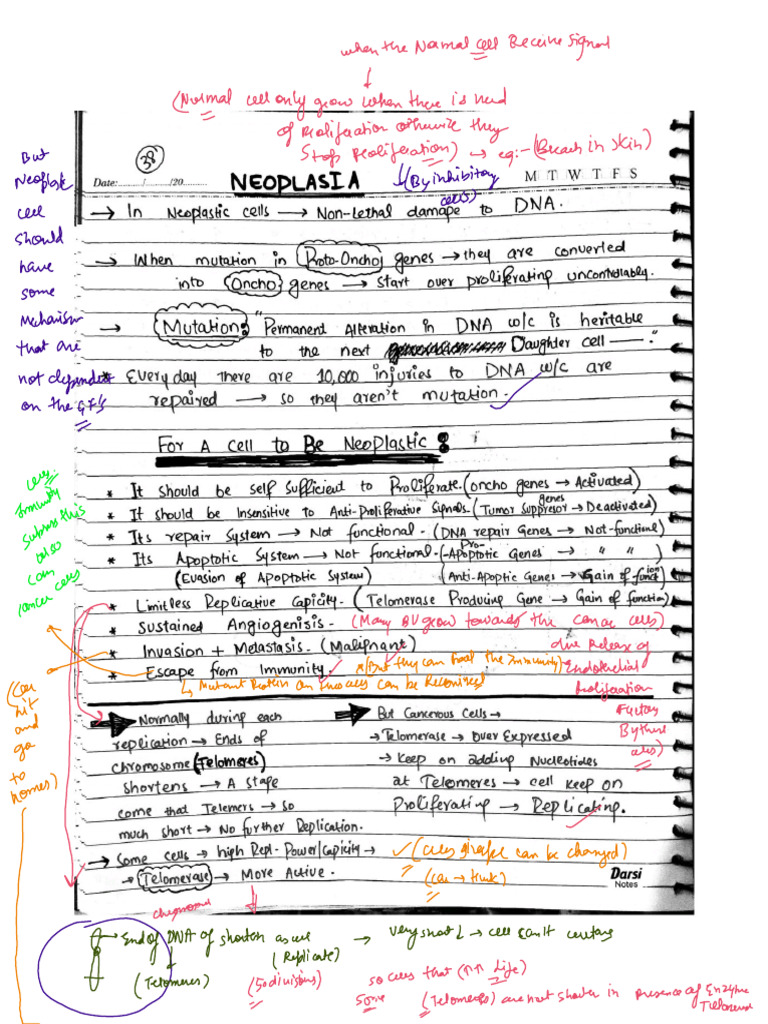 when the Normal cell Receive signal
(Normal cell only grow when there is need
of Proliferation otherwise they
Stop Proliferation) → eg:- (Breach in skin)
(By inhibitory
cells)
38
Date: / /20
NEOPLASIA
M T W T F S
→ In Neoplastic cells → Non-Lethal damage to DNA.
→ When mutation in Proto-Oncho genes → they are converted
into Oncho genes → start over proliferating uncontrollably.
→ Mutation: "Permanent Alteration in DNA w/c is heritable
to the next Daughter cell —."
* Every day there are 10,000 injuries to DNA w/c are
repaired → so they aren't mutation.
But
Neoplastic
cell
should
have
some
Mechanism
that are
not dependent
on the GF's
For A Cell to Be Neoplastic:
* It should be self sufficient to Proliferate. (oncho genes → Activated)
* It should be Insensitive to Anti-Proliferative Signals. (Tumor suppresor genes → Deactivated)
* Its repair System → Not functional. (DNA repair Genes → Not-functional)
* Its Apoptotic System → Not functional. (Pro-Apoptotic Genes → " ")
(Evasion of Apoptotic System) (Anti-Apoptic Genes → Gain of function)
* Limitless Replicative Capicity. (Telomerase Producing Gene → Gain of function)
* Sustained Angiogenisis. (Many BV grow towards the cancer cells)
* Invasion + Metastasis. (Malignant)
* Escape from Immunity. (But they can fool the Immunity)
↳ Mutant Protein on cells can be Recognized
due Release of
Endothelial
Proliferation
Factors
By these
cells)
Immunity
also
can
cancer cells
(Can
hit
and
go
to
homes)
➡ Normally during each
replication → Ends of
chromosome (Telomeres)
shortens → A stage
come that Telemers → so
much short → No further Replication.
→ Some cells → high Repl. Power/Capicity →
→ Telomerase → More Active.
➡ But Cancerous Cells →
→ Telomerase → Over Expressed
→ Keep on adding Nucleotides
at Telomeres → cell keep on
Proliferating → Replicating.
✓ (cells can be changed)
Darsi
Notes
→ End of DNA of shorten as we → very short → cell can't
(Replicate)
(Telomeres)
(50 divisions)
so cells that (↑↑ Life)
some (Telomeres) are not shorten in presence of Enzyme